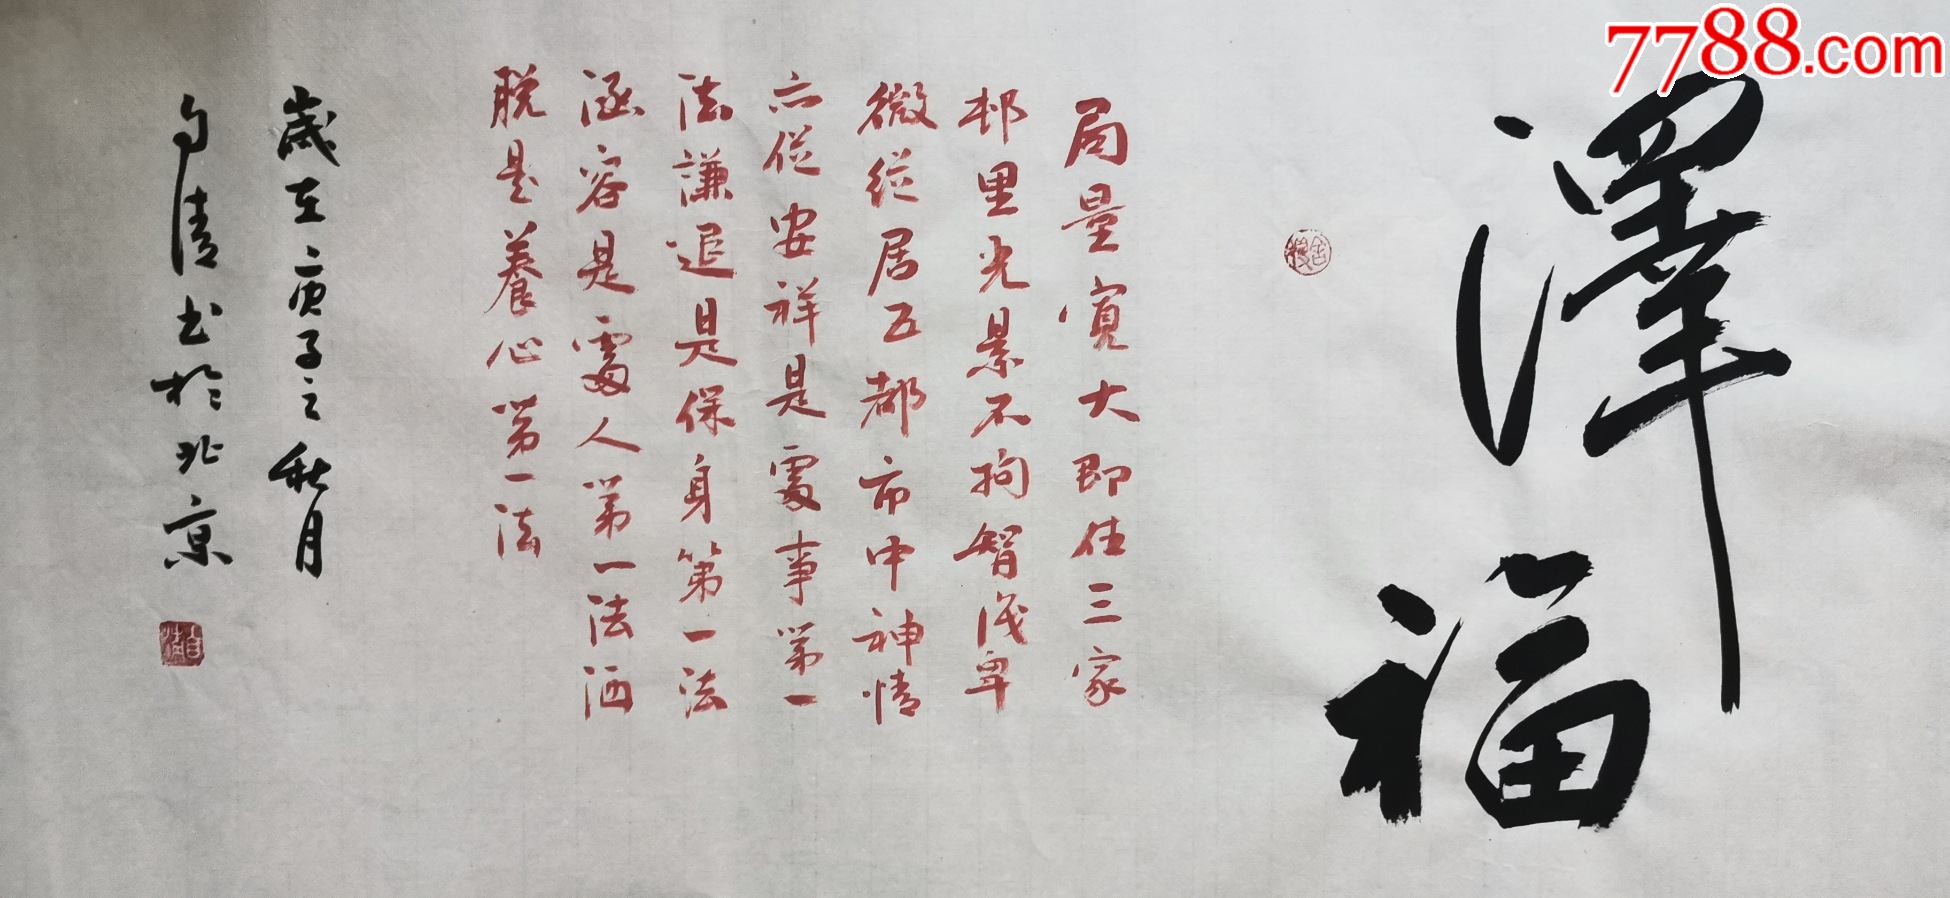 7788.com
澤福
局量寬大即住三家
邨里光景不拘智識卑
微縱居五都市中神情
亦促安祥是處事第一
法謙退是保身第一法
涵容是處人第一法洒
脫是養心第一法
歲在庚子之秋月
自清书於北京
自清